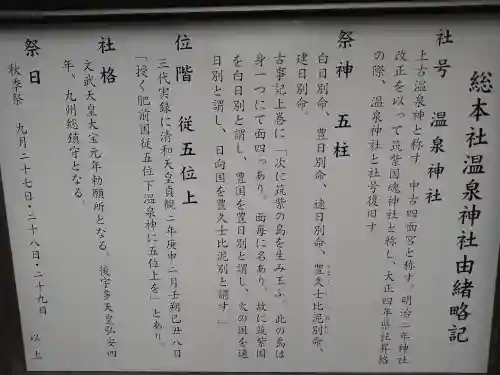 総本社温泉神社由緒略記
社号 温泉神社
上古温泉神と称す 中古四面宮と称す。明治二年神社
改正を以って筑紫国魂神社と称し、大正四年県社昇格
の際、温泉神社と社号復旧す
祭神 五柱
白日別命、豊日別命、速日別命、豊久士比泥別命、
建日別命。
古事記上巻に「次に筑紫の島を生み玉ふ。此の島は
身一つにて面四つあり。面毎に名あり。故に筑紫国
を白日別と謂し、豊国を豊日別と謂し、火の国を速
日別と謂し、日向国を豊久士比泥別と謂す。」
位階 従五位上
三代実録に清和天皇貞観二年庚申二月壬朔己丑八日
「授く肥前国従五位下温泉神に五位上を」とあり。
社格
文武天皇大宝元年勅願所となる。後宇多天皇弘安四
年、九州総鎮守となる。
祭日
秋季祭 九月二十七日・二十八日・二十九日 以上